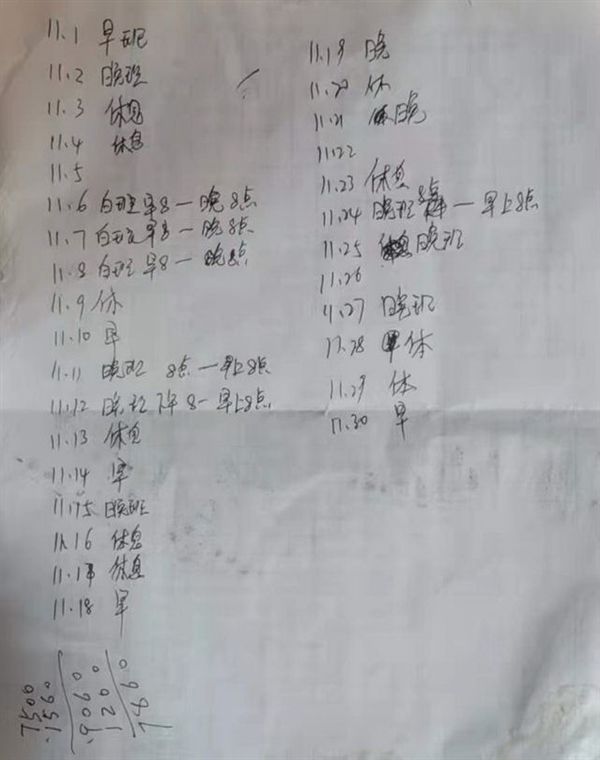 11.1 早班
11.2 晚班
11.3 休息
11.4 休息
11.5
11.6 白班早8一晚8点
11.7 白班早8一晚8点
11.8 白班早8一晚8点
11.9 休
11.10 早
11.11 晚班 8点一早上8点
11.12 晚班下午8-早上8点
11.13 休息
11.14 早
11.15 晚班
11.16 休息
11.17 休息
11.18 早
11.19 晚
11.20 休
11.21 晚
11.22
11.23 休息
11.24 晚班8点一早上8点
11.25 晚班
11.26
11.27 晚班
11.28 休
11.29 休
11.30 早